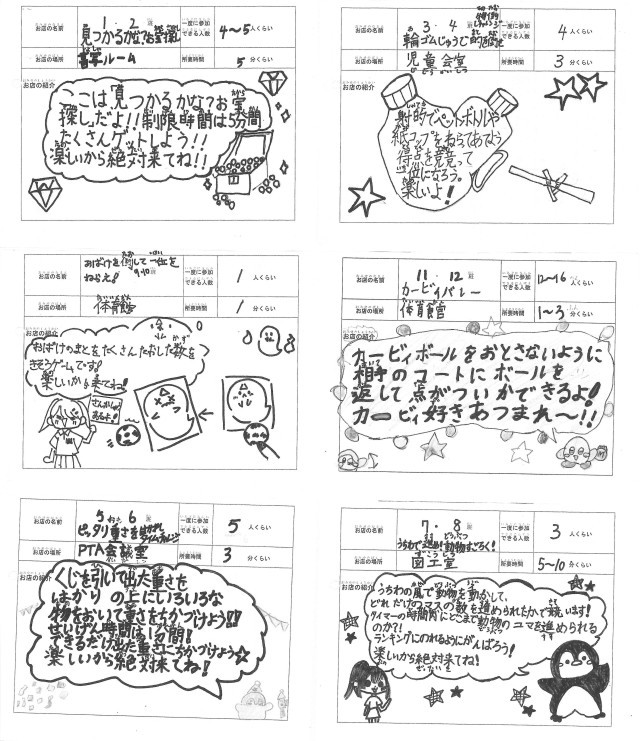 お店の名前
1・2班
見つかるかな?お宝探し
一度に参加できる人数
4~5人くらい
お店の場所
書写ルーム
所要時間
5分くらい
お店の紹介
ここは見つかるかな?お宝
探しだよ!!制限時間は5分間
たくさんゲットしよう!!
楽しいから絶対来てね!!
お店の名前
3・4班
輪ゴムじゅうで的を
一度に参加できる人数
4人くらい
お店の場所
児童会堂
所要時間
3分くらい
お店の紹介
射的でペットボトルや
紙コップをねらてあてよう
得点を競って
一位になろう。
楽しいよ!
お店の名前
おばけを倒して一位を
ねらえ!
9・10班
一度に参加できる人数
1人くらい
お店の場所
体育館
所要時間
1分くらい
お店の紹介
おばけのまとをたくさんたおした数を
きそうゲームです!
楽しいから来てね!
さんかしょう
あるよ!
お店の名前
11・12班
カービィバレー
一度に参加できる人数
12~16人くらい
お店の場所
体育館
所要時間
1~3分くらい
お店の紹介
カービィボールをおとさないように
相手のコートにボールを
返して点がついかできるよ!
カービィ好きあつまれ~!!
お店の名前
5・6班
ピッタリ重さをはかれ
タイムチャレンジ
一度に参加できる人数
5人くらい
お店の場所
PTA会議室
所要時間
3分くらい
お店の紹介
くじを引いて出た重さを
はかりの上にいろいろな
物をおいて重さをちかづけよう!!
せいげん時間は1分間!
できるだけ出た重さにちかづけよう☆
楽しいから絶対来てね!
お店の名前
7・8班
うちわで進め!動物すごろく!
一度に参加できる人数
3人くらい
お店の場所
図工室
所要時間
5~10分くらい
お店の紹介
うちわの風で動物を動かして、
どれだけのマスの数を進められたかで競います!
タイマーの時間内にどこまで動物のコマを進められる
のか?!
ランキングにのれるようにがんばろう!
楽しいから絶対来てね!